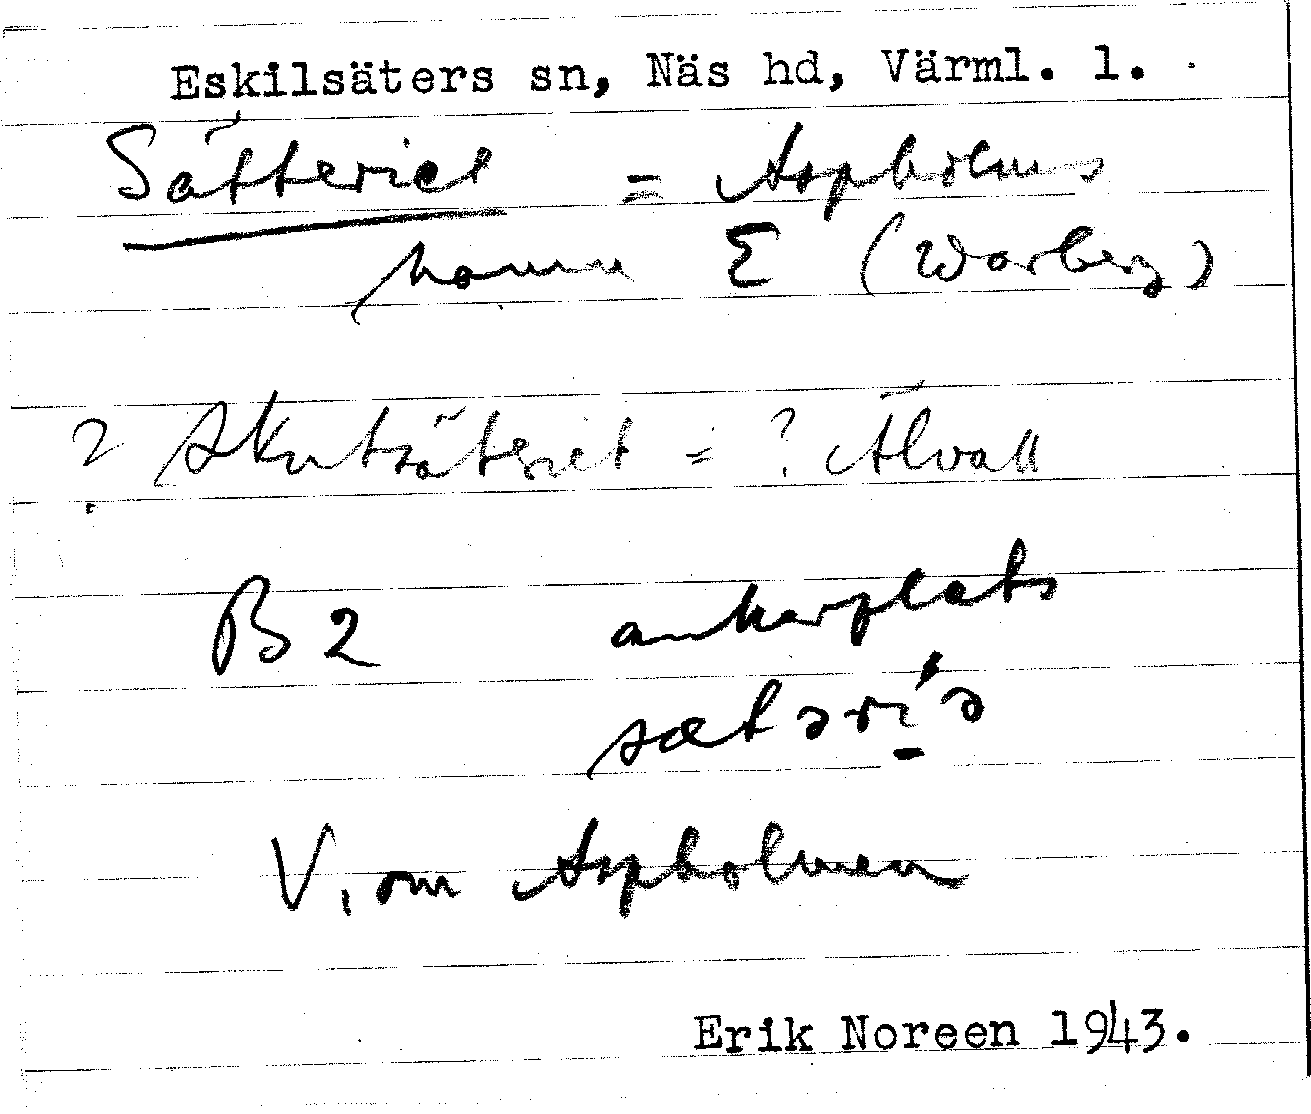 Eskilsäters sn, Näs hd, Värml. l.
Sätteriet = Aspholms
hamn E (Warberg)
? Skutsäteriet = ? Älvall
B2 ankarplats
sætəri´ə
V. om Aspholmen
Erik Noreen 1943.